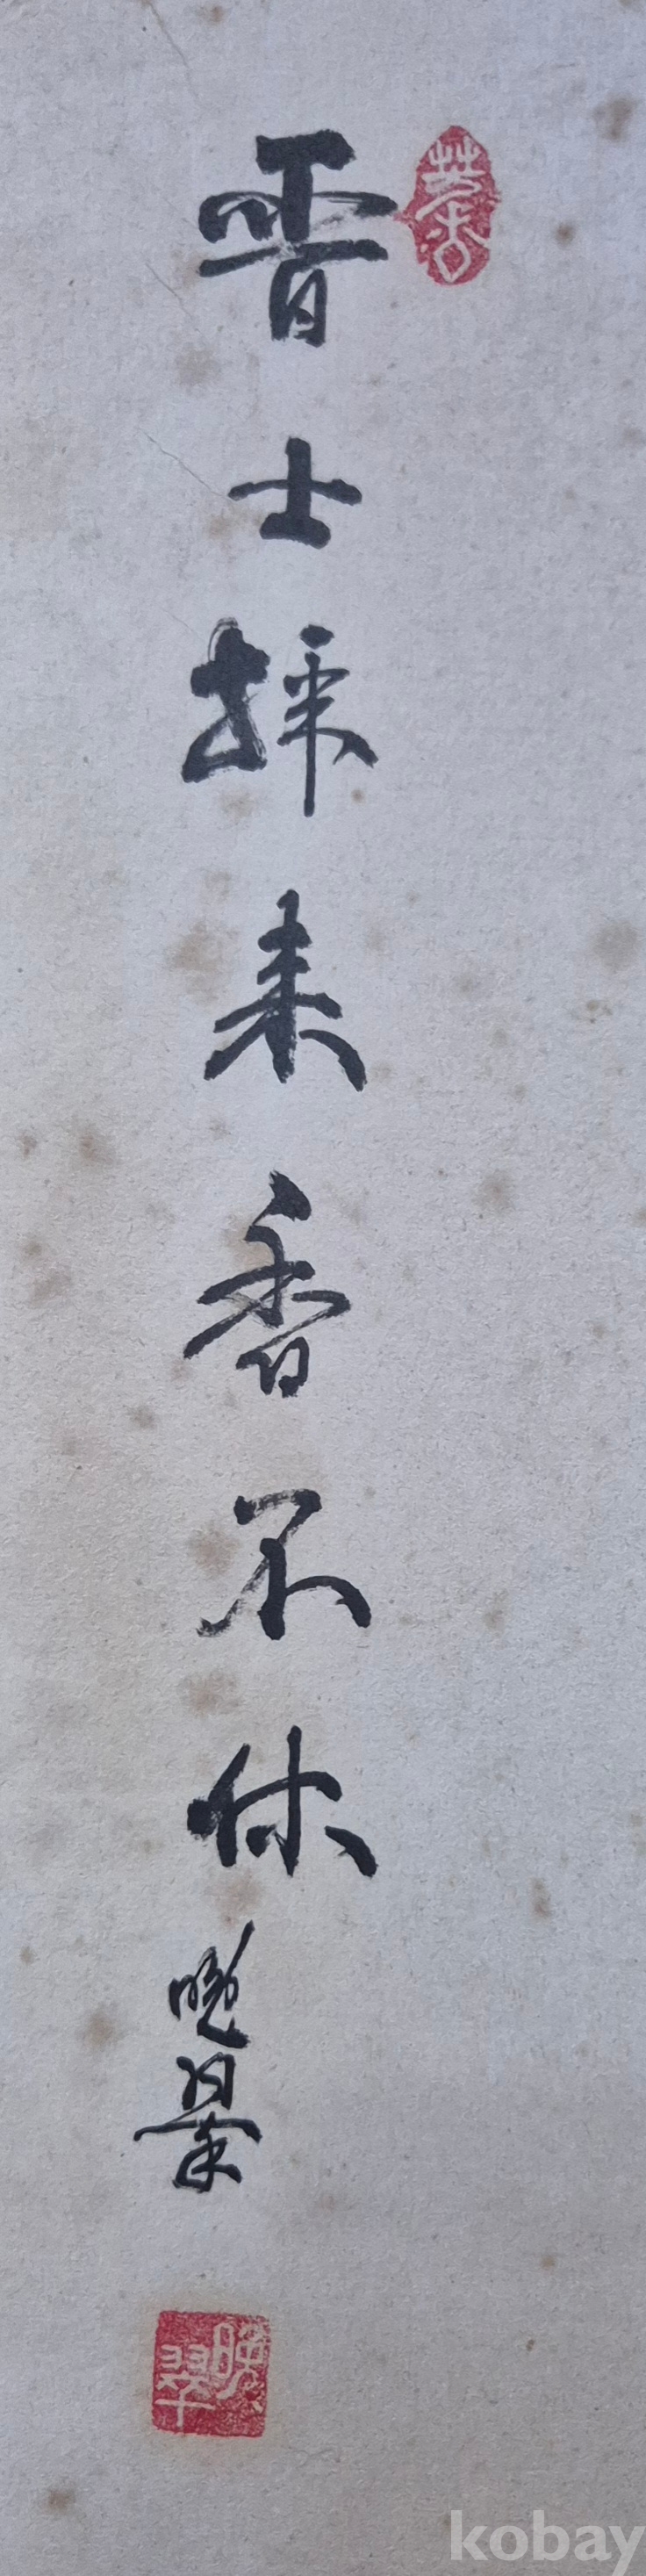 晋士採来香不休
晩翠
晩翠
kobay